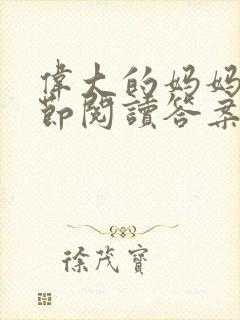 偉大的妈妈
節閱讀答案
徐茂寶